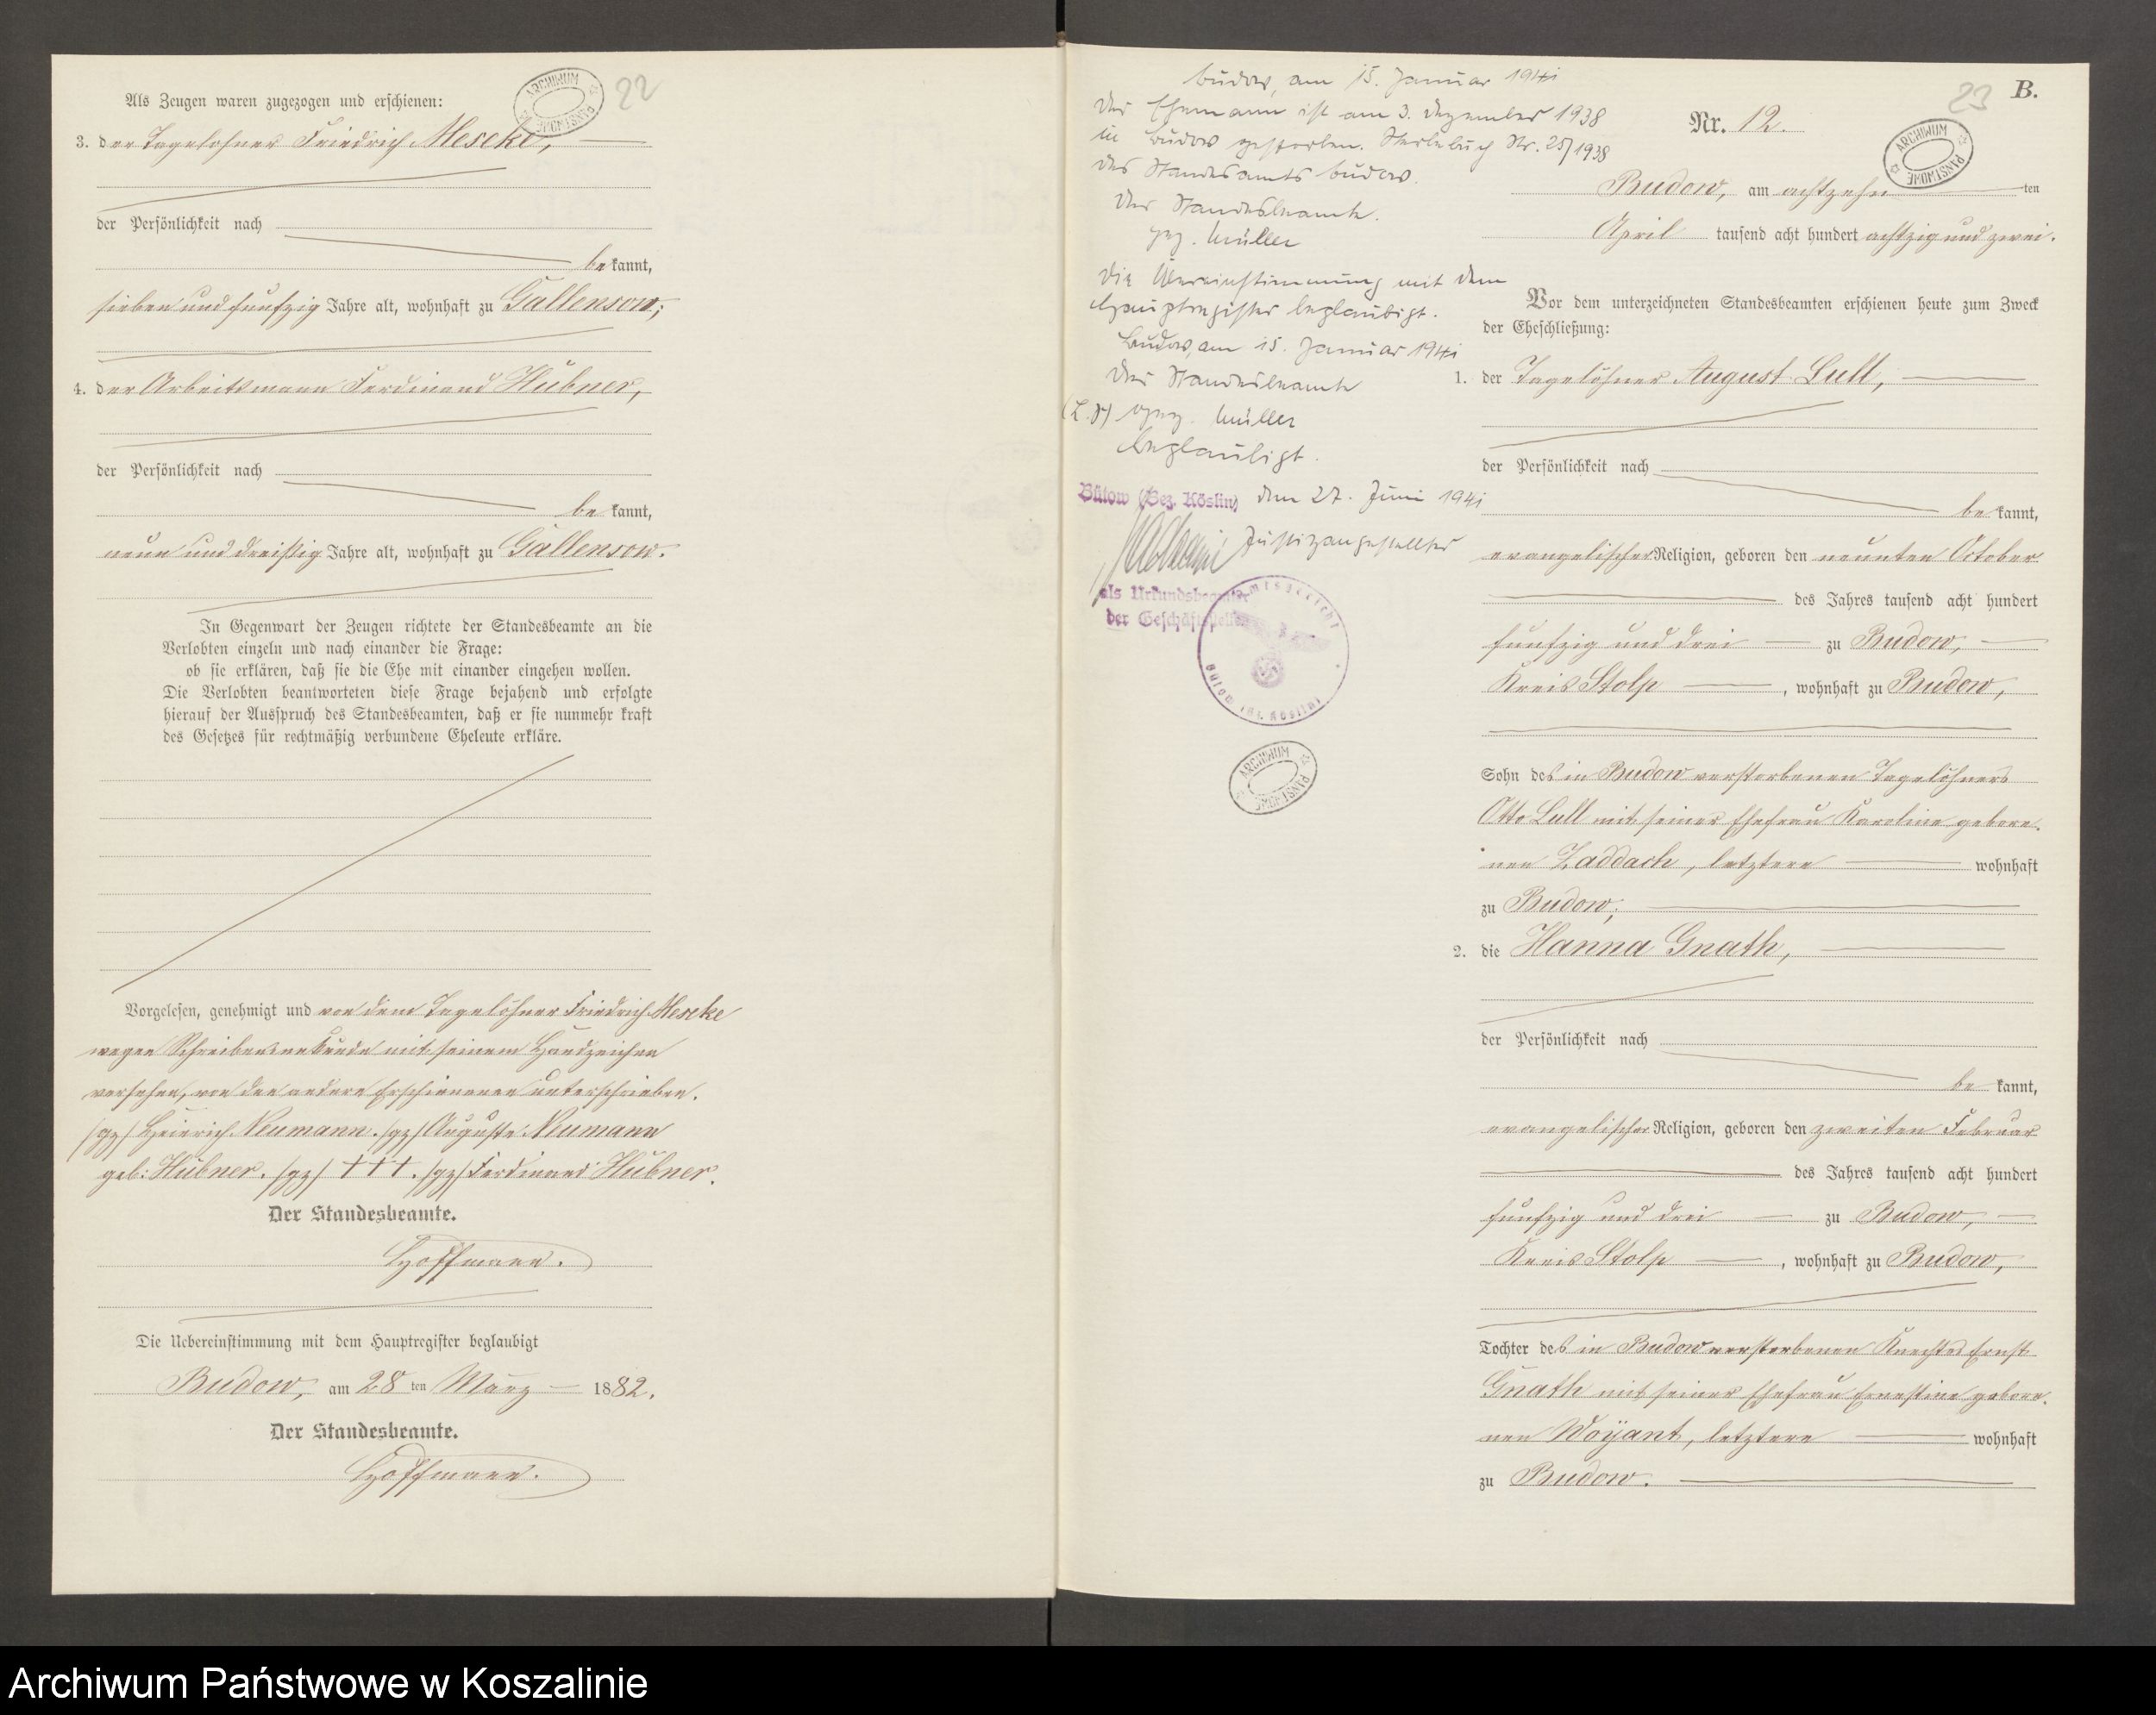 22
Als Zeugen waren zugezogen und erschienen:
3. der Tagelöhner Friedrich Meseke,
der Persönlichkeit nach
be kannt,
sieben und funfzig Jahre alt, wohnhaft zu Gallensow;
4. der Arbeitsmann Ferdinand Hübner,
der Persönlichkeit nach
be kannt,
neun und dreißig Jahre alt, wohnhaft zu Gallensow.
In Gegenwart der Zeugen richtete der Standesbeamte an die
Verlobten einzeln und nach einander die Frage:
ob sie erklären, daß sie die Ehe mit einander eingehen wollen.
Die Verlobten beantworteten diese Frage bejahend und erfolgte
hierauf der Ausspruch des Standesbeamten, daß er sie nunmehr kraft
des Gesetzes für rechtmäßig verbundene Eheleute erkläre.
Vorgelesen, genehmigt und von dem Tagelöhner Friedrich Meseke
wegen Schreibensunkunde mit seinem Handzeichen
versehen, von den andern Erschienenen unterschrieben.
/gz/ Heinrich Neumann. /gz/ Auguste Neumann
geb: Hübner. /gz/ +++. /gz/ Ferdinand Hübner.
Der Standesbeamte.
Hoffmann.
Die Uebereinstimmung mit dem Hauptregister beglaubigt
Budow, am 28 ten März 1882.
Der Standesbeamte.
Hoffmann.
Budow, am 15. Januar 1941
Der Ehemann ist am 3. Dezember 1938
in Budow gestorben. Sterbebuch Nr. 25/1938
des Standesamts Budow.
Der Standesbeamte.
gez. Müller
Die Übereinstimmung mit dem
Hauptregister beglaubigt.
Budow, am 15. Januar 1941
Der Standesbeamte
(L.S) gez. Müller
Beglaubigt.
Bütow (Bez. Köslin) den 27. Juni 1941
Justizangestellter
als Urkundsbeamter
der Geschäftsstelle
Amtsgericht
Bütow Bz. Köslin
ARCHIWUM PAŃSTWOWE
23
B.
Nr. 12.
Budow, am achtzehn ten
April tausend acht hundert achtzig und zwei.
Vor dem unterzeichneten Standesbeamten erschienen heute zum Zweck
der Eheschließung:
1. der Tagelöhner August Lull,
der Persönlichkeit nach
be kannt,
evangelischer Religion, geboren den neunten October
des Jahres tausend acht hundert
funfzig und drei zu Budow,
Kreis Stolp, wohnhaft zu Budow,
Sohn des in Budow verstorbenen Tagelöhners
Otto Lull mit seiner Ehefrau Karoline gebore.
nen Zaddach, letztere wohnhaft
zu Budow;
2. die Hanna Gnath,
der Persönlichkeit nach
be kannt,
evangelischer Religion, geboren den zweiten Februar
des Jahres tausend acht hundert
funfzig und drei zu Budow,
Kreis Stolp, wohnhaft zu Budow,
Tochter des in Budow verstorbenen Knechts Ernst
Gnath mit seiner Ehefrau Ernestine gebore.
nen Woÿant, letztere wohnhaft
zu Budow.
Archiwum Państwowe w Koszalinie